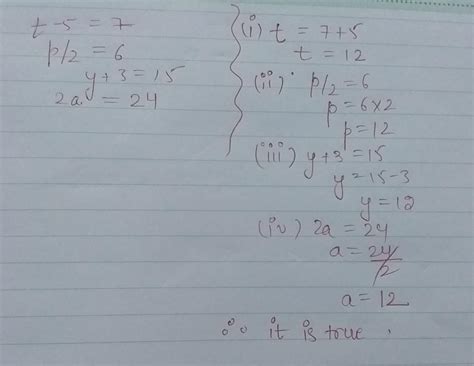 t-5 = 7
p/2 = 6
y+3 = 15
2a = 24
(i) t = 7+5
t = 12
(ii) p/2 = 6
p = 6×2
p = 12
(iii) y+3 = 15
y = 15-3
y = 12
(iv) 2a = 24
a = 24/2
a = 12
∴ it is true.